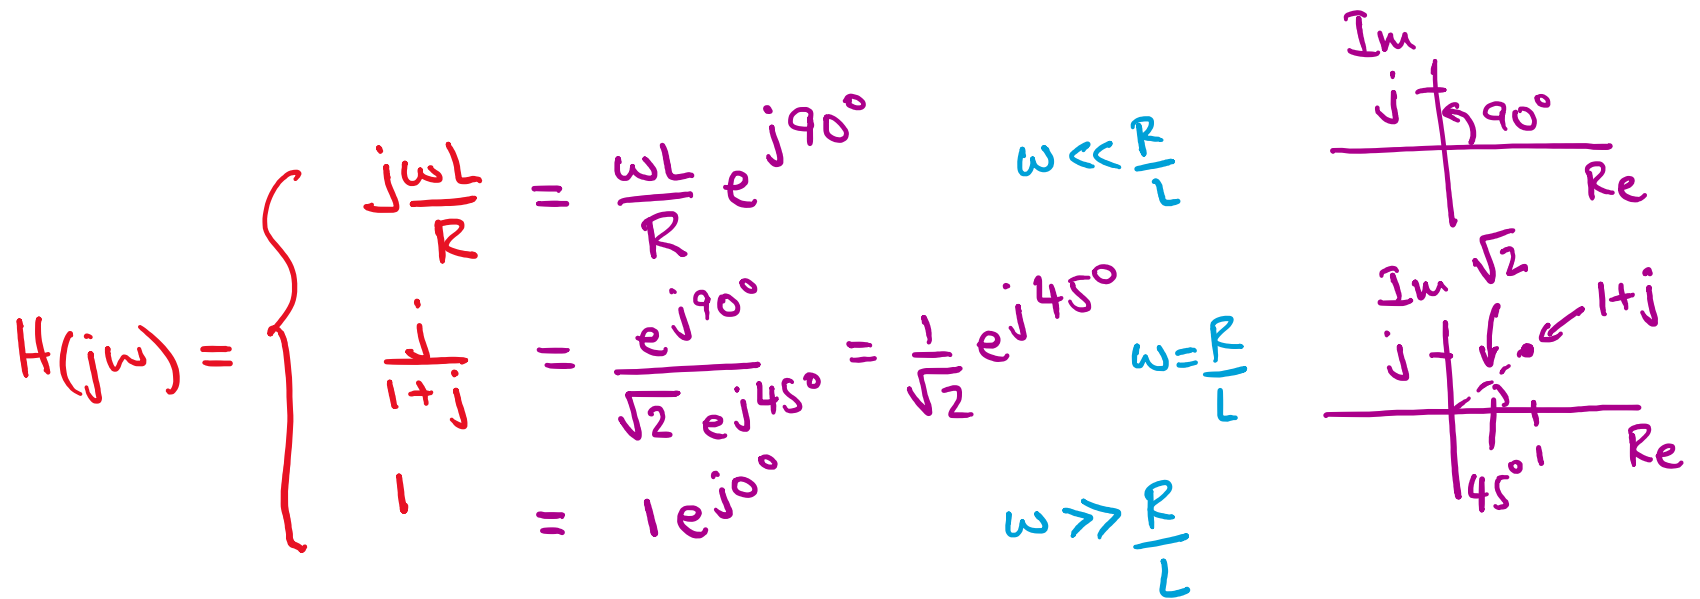 jωL/R = ωL/R e^{j90°} ω << R/L
H(jω) = { j/(1+j) = e^{j90°}/(√2 e^{j45°}) = 1/√2 e^{j45°} ω = R/L
1 = 1 e^{j0°} ω >> R/L
Im
j 90°
Re
Im √2 1+j
j
Re
45° 1